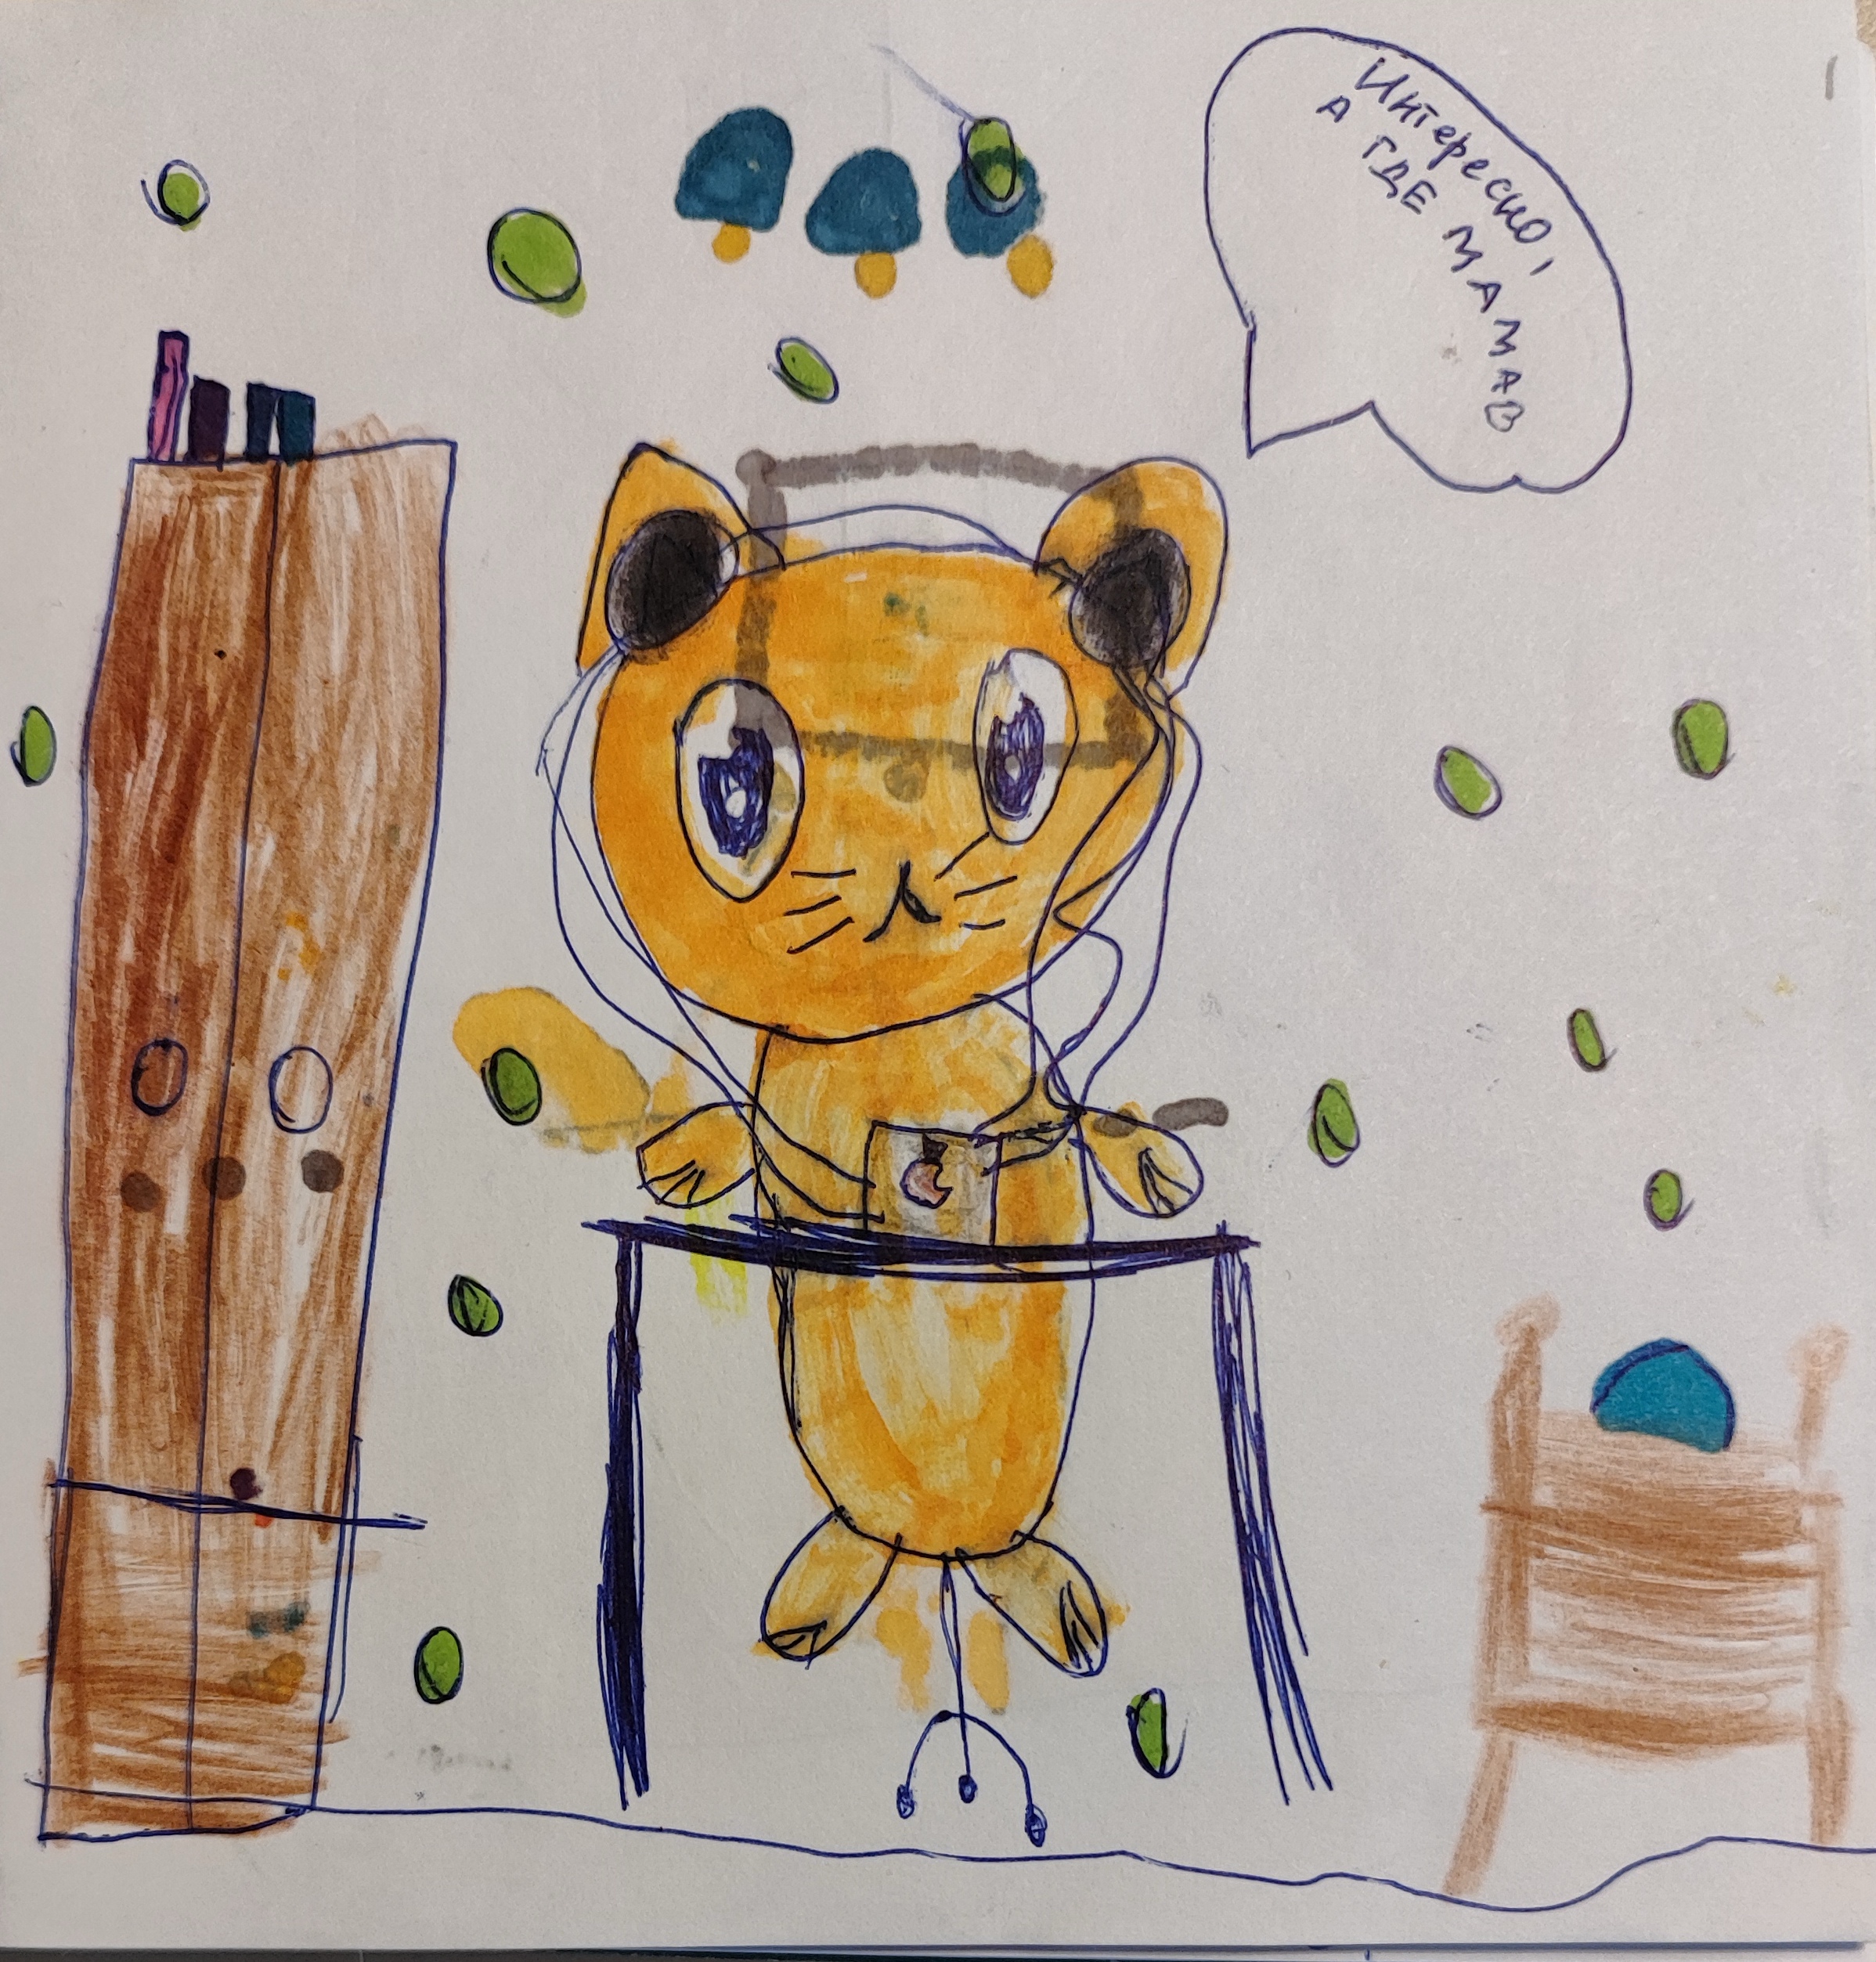 Интересно,
А ГДЕ МАМАВ